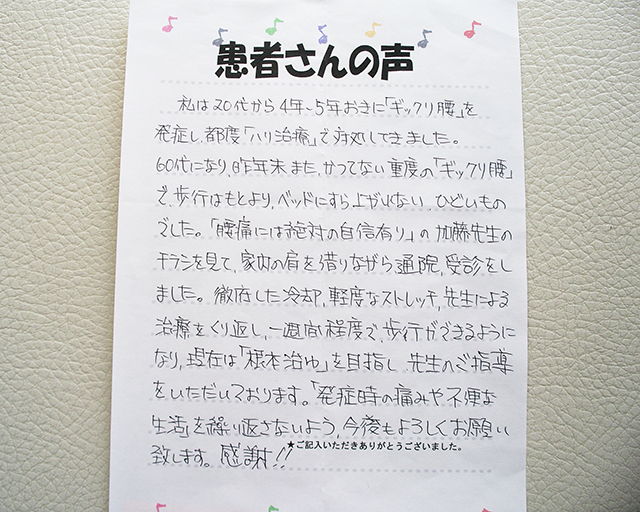 患者さんの声
私は20代から4年~5年おきに「ギックリ腰」を
発症し、都度「ハリ治療」で対処してきました。
60代になり、昨年末また、かつてない重度の「ギックリ腰」
で、歩行はもとより、ベッドにすら上がれない、ひどいもの
でした。「腰痛には絶対の自信有り」の加藤先生の
チラシを見て、家内の肩を借りながら通院、受診をし
ました。徹底した冷却、軽度なストレッチ、先生による
治療をくり返し、一週間程度で、歩行ができるように
なり、現在は「根本治ゆ」を目指し、先生のご指導
をいただいております。「発症時の痛みや不便な
生活」を繰り返さないよう、今後もよろしくお願い
致します。感謝!!
★ご記入いただきありがとうございました。